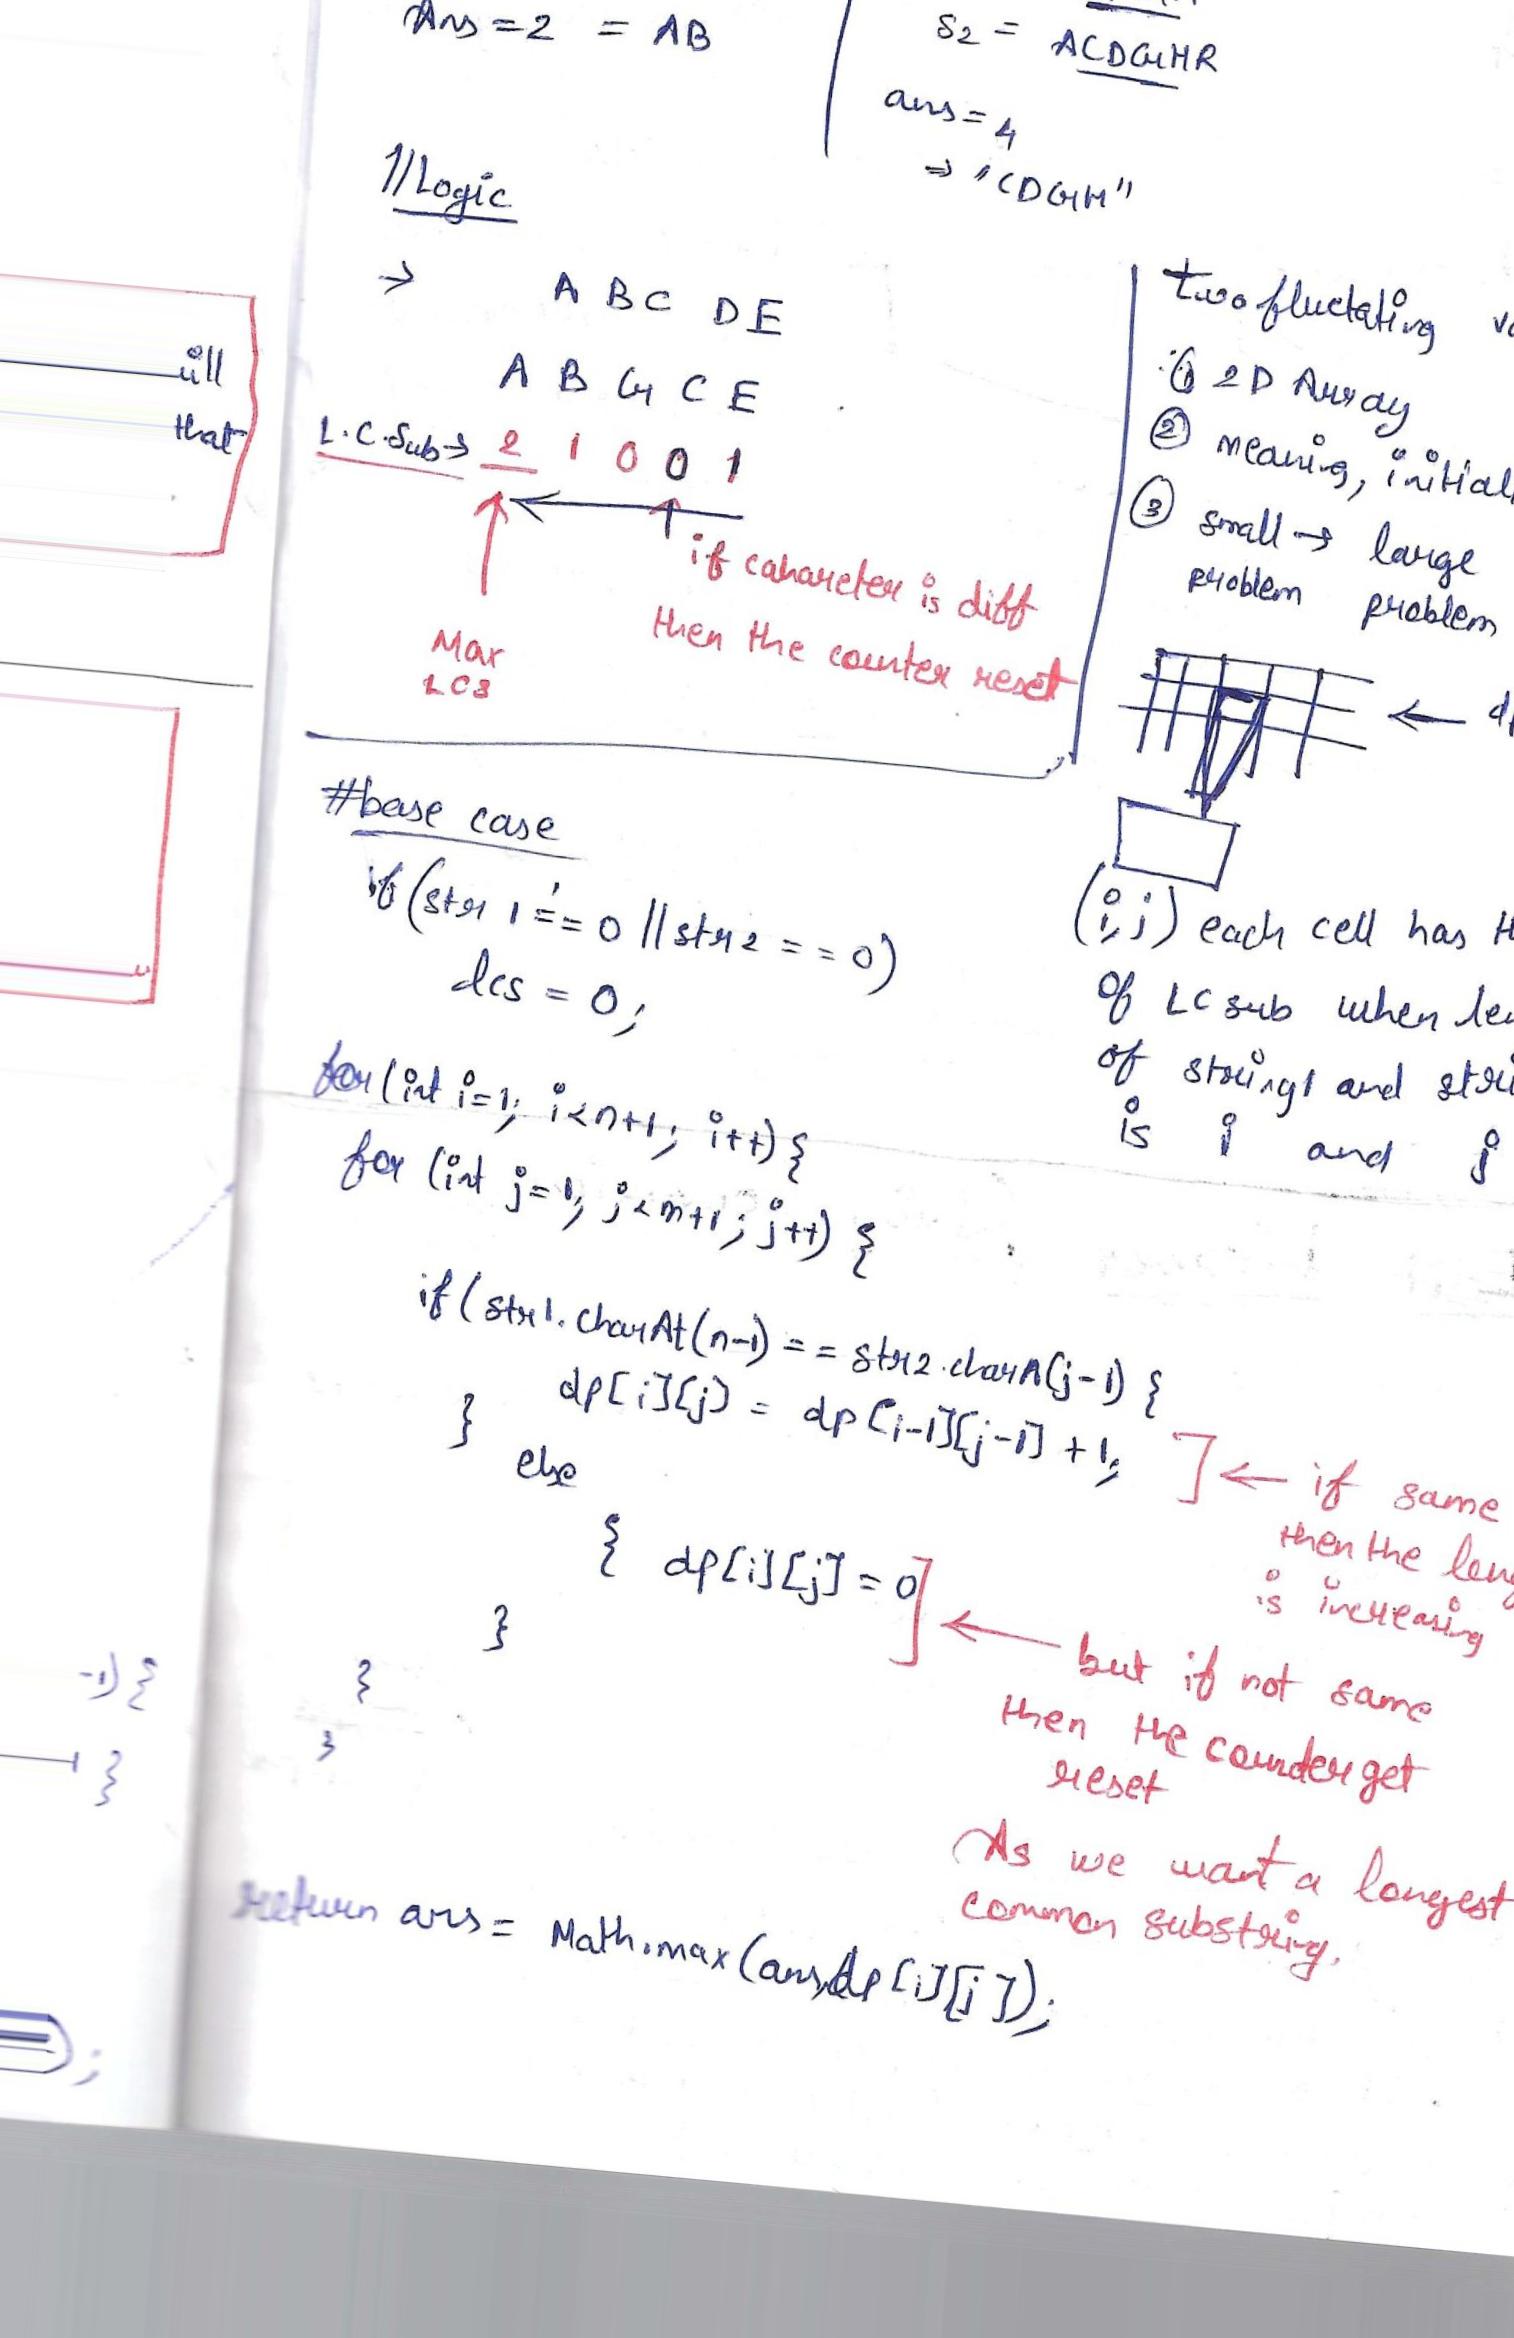 Ans = 2 = AB
S2 = ACDGHR
ans = 4
⇒ "CDGH"
//Logic
→ A B C D E
A B G C E
L.C.Sub → 2 1 0 0 1
if cahareter is diff
then the counter reset
Max
LCS
two fluctating
① 2D Array
② meaning, initial
③ small → large
problem problem
(i,j) each cell has
of LC sub when
of string1 and
is i and j
#base case
if (str1 == 0 || str2 == 0)
lcs = 0;
for (int i=1; i<n+1; i++) {
for (int j=1; j<m+1; j++) {
if (str1.charAt(n-1) == str2.charA(j-1) {
dp[i][j] = dp[i-1][j-1] + 1;
} else
{ dp[i][j] = 0
}
}
}
← if same
then the
is increasing
← but if not same
then the counder get
reset
As we want a longest
common substring.
return ans = Math.max(ans,dp[i][j]);
ill
that
-1) {
}
;